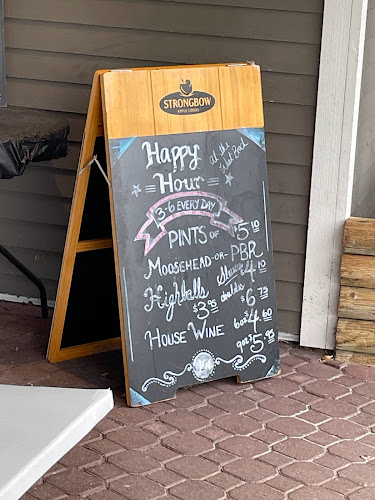 STRONGBOW
APPLE CIDERS
Happy
Hour
at the
3-6 EVERY DAY
PINTS OF $5.10
MOOSEHEAD-OR-PBR
Highballs $3.95 $4.10
doubles $6.75
HOUSE WINE 6oz $4.60
9oz $5.95